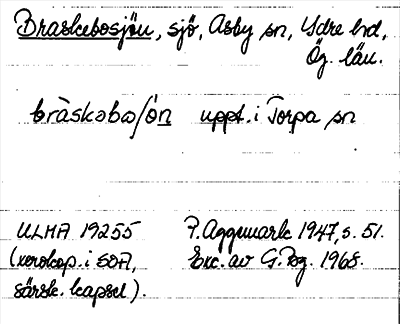 Braskebosjön, sjö, Asby sn, Ydre hd,
Ög. län.
bràskəbω/ón uppt. i Torpa sn
ULMA 19255 P. Aggmark 1947, s. 51.
(xerokop. i SOA, Exc. av G. Pog. 1968.
särsk. kapsel).